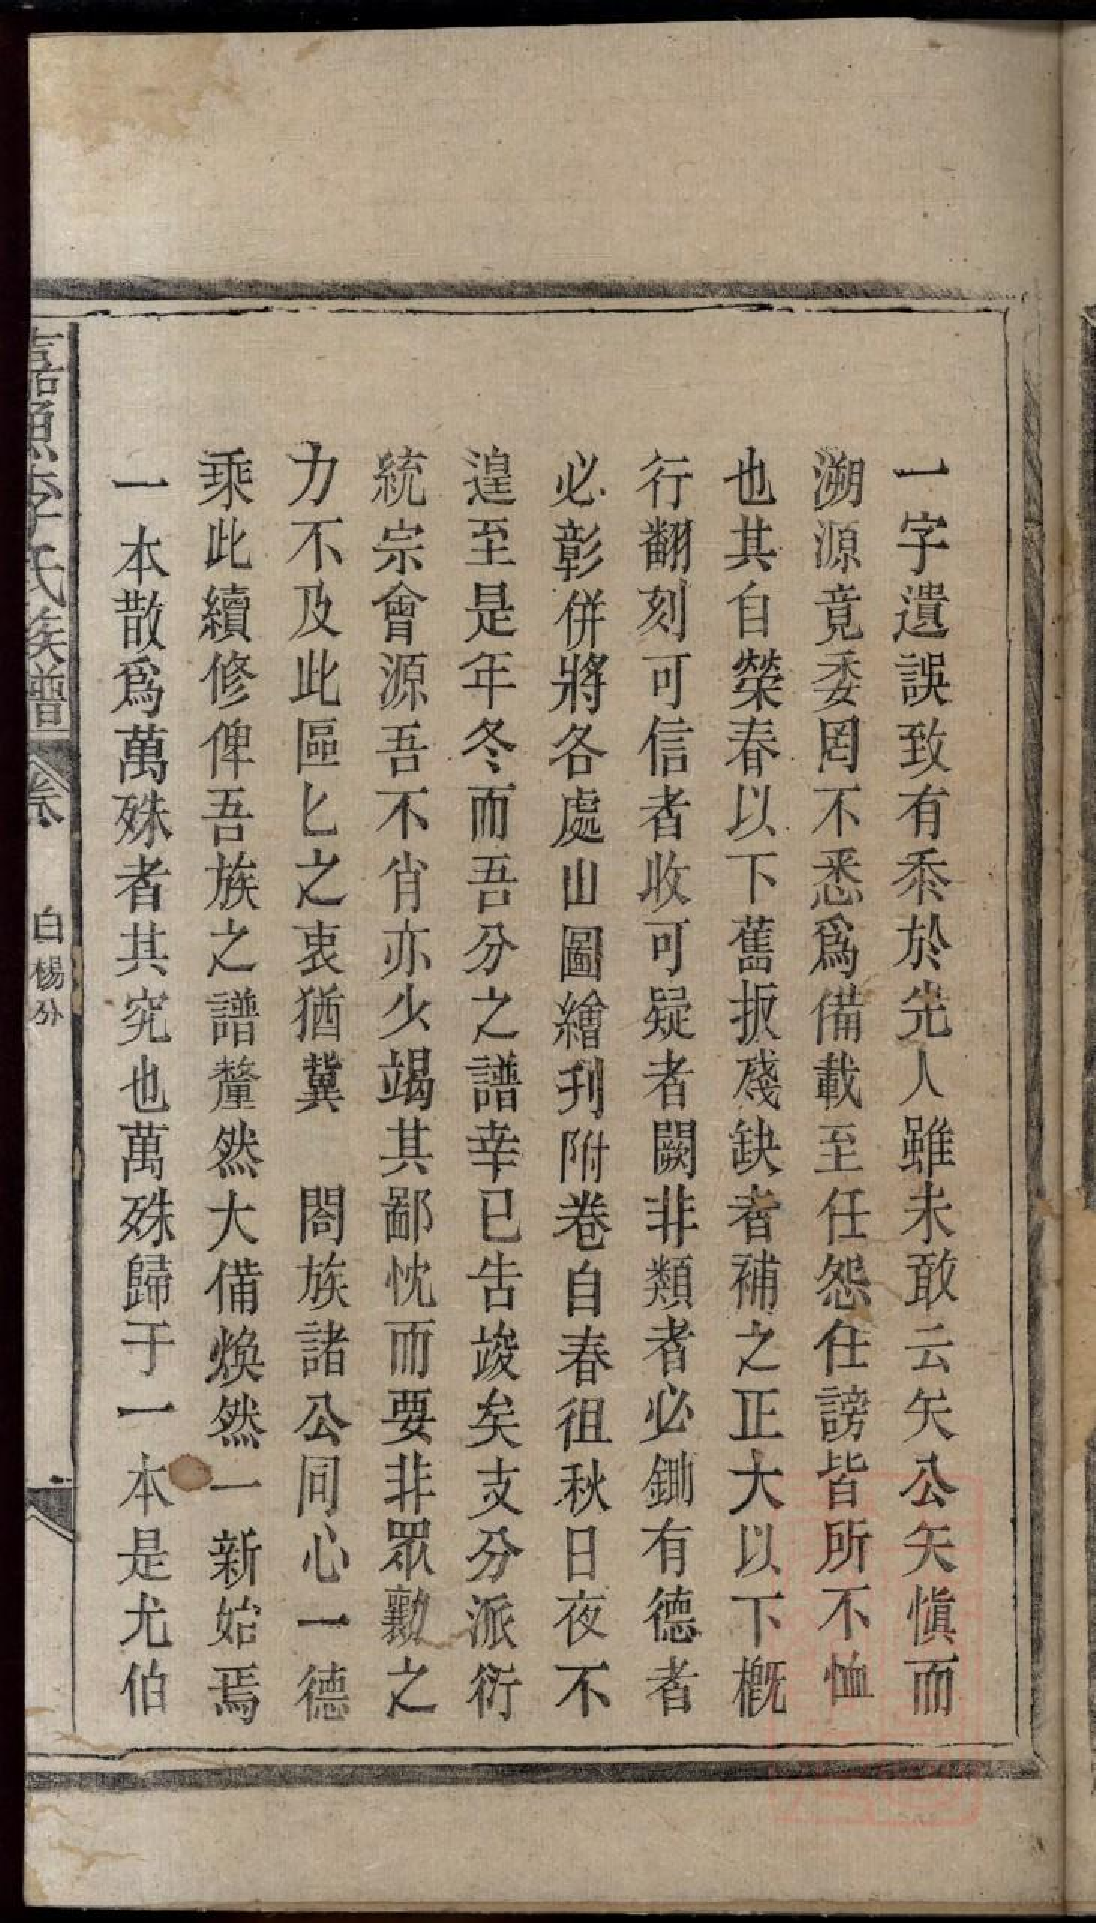 一字遺誤致有忝於先人雖未敢云矢公矢愼而
溯源竟委罔不悉爲備載至任怨任謗皆所不恤
也其自榮春以下舊扳殘缺者補之正大以下槪
行翻刻可信者收可疑者闕非類者必鋤有德者
必彰併將各處山圖繪刋附卷自春徂秋日夜不
遑至是年冬而吾分之譜幸已告竣矣支分派衍
統宗會源吾不肖亦少竭其鄙忱而要非眾勷之
力不及此區匕之衷猶冀　閤族諸公同心一德
乘此續修俾吾族之譜釐然大備煥然一新始焉
一本散爲萬殊者其究也萬殊歸于一本是尤伯
李氏族譜 卷 白楊分